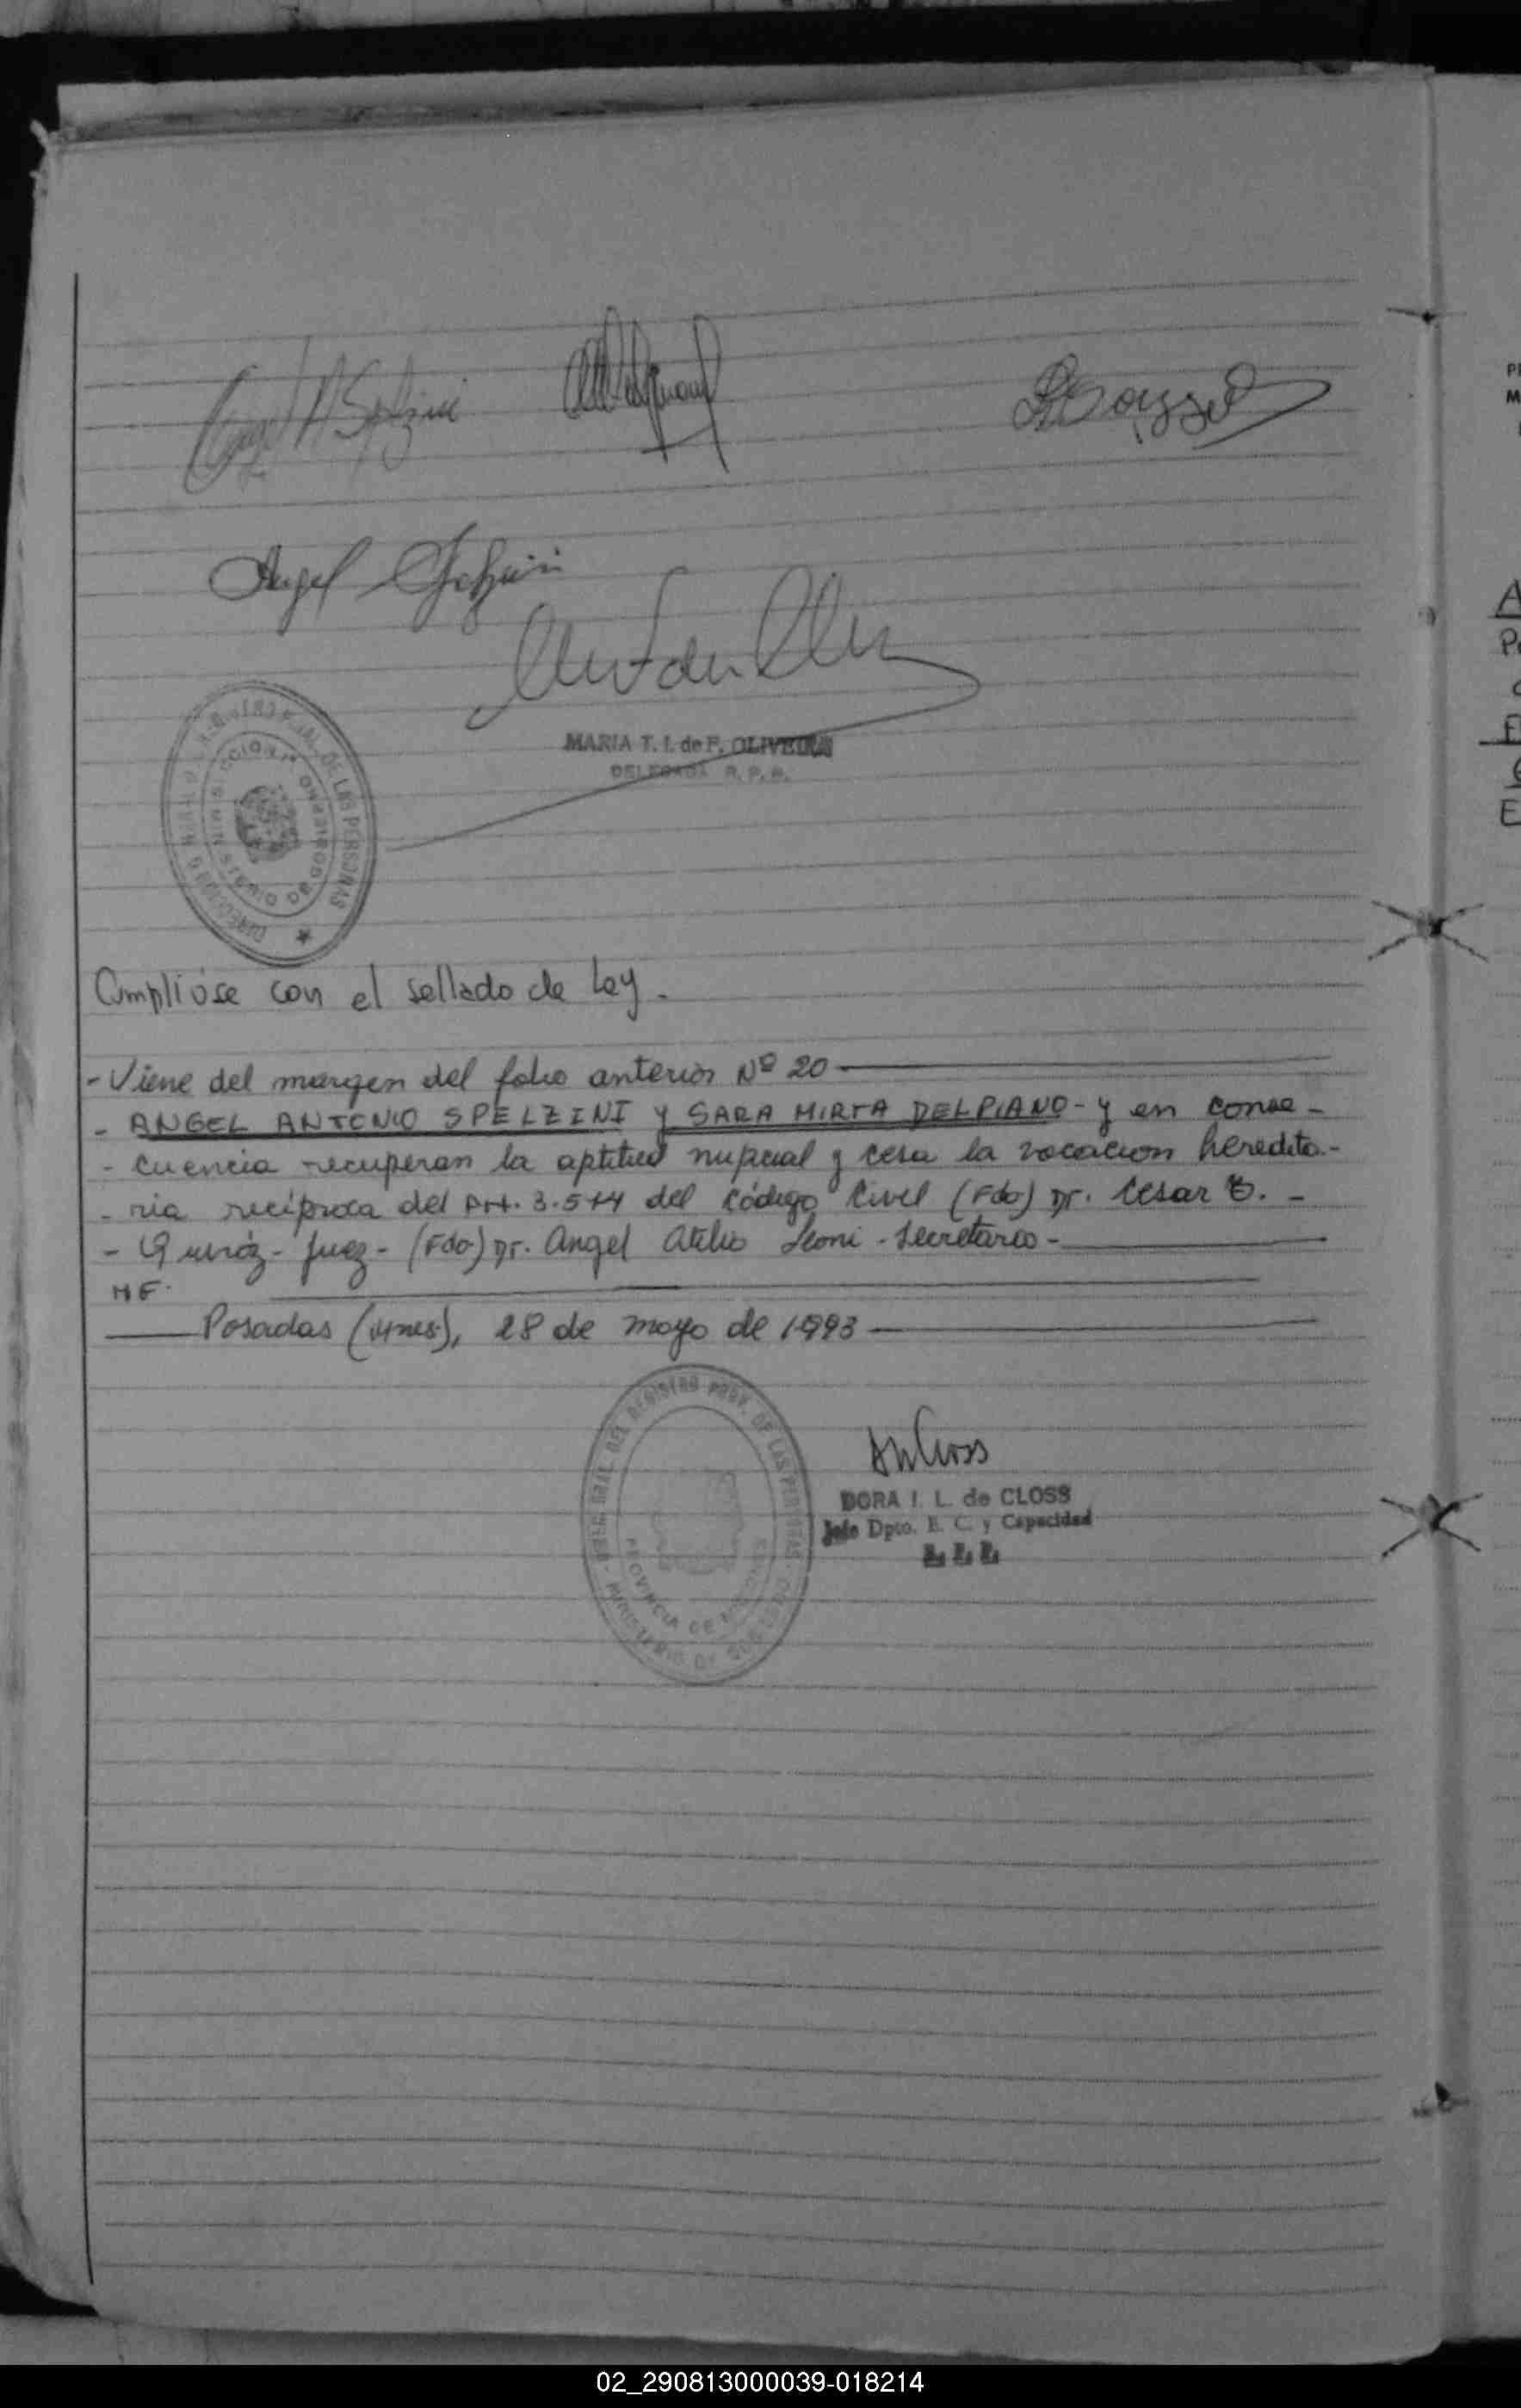 Angel A Spelzini
Angel Spelzini
MARIA T. I. de F. OLIVEIRA
DELEGADA R. P. P.
DE LAS PERSONAS
MINISTERIO DE GOBIERNO
Cumplióse con el sellado de Ley.
- Viene del margen del folio anterior Nº 20
- ANGEL ANTONIO SPELZINI y SARA MIRTA DELPIANO - y en conse -
- cuencia recuperan la aptitud nupcial y cesa la vocacion heredita.-
- ria recíproca del Art. 3.574 del Código Civil (Fdo) Dr. Cesar B. -
- Quiróz - Juez - (Fdo) Dr. Angel Atilio Leoni - Secretario -
MF.
Posadas (Mnes), 28 de mayo de 1993
DEL REGISTRO PROV. DE LAS PERSONAS
PROVINCIA DE MISIONES
MINISTERIO DE GOBIERNO
DORA I. L. de CLOSS
Jefe Dpto. E. C. y Capacidad
PE
M
A
E
02_290813000039-018214